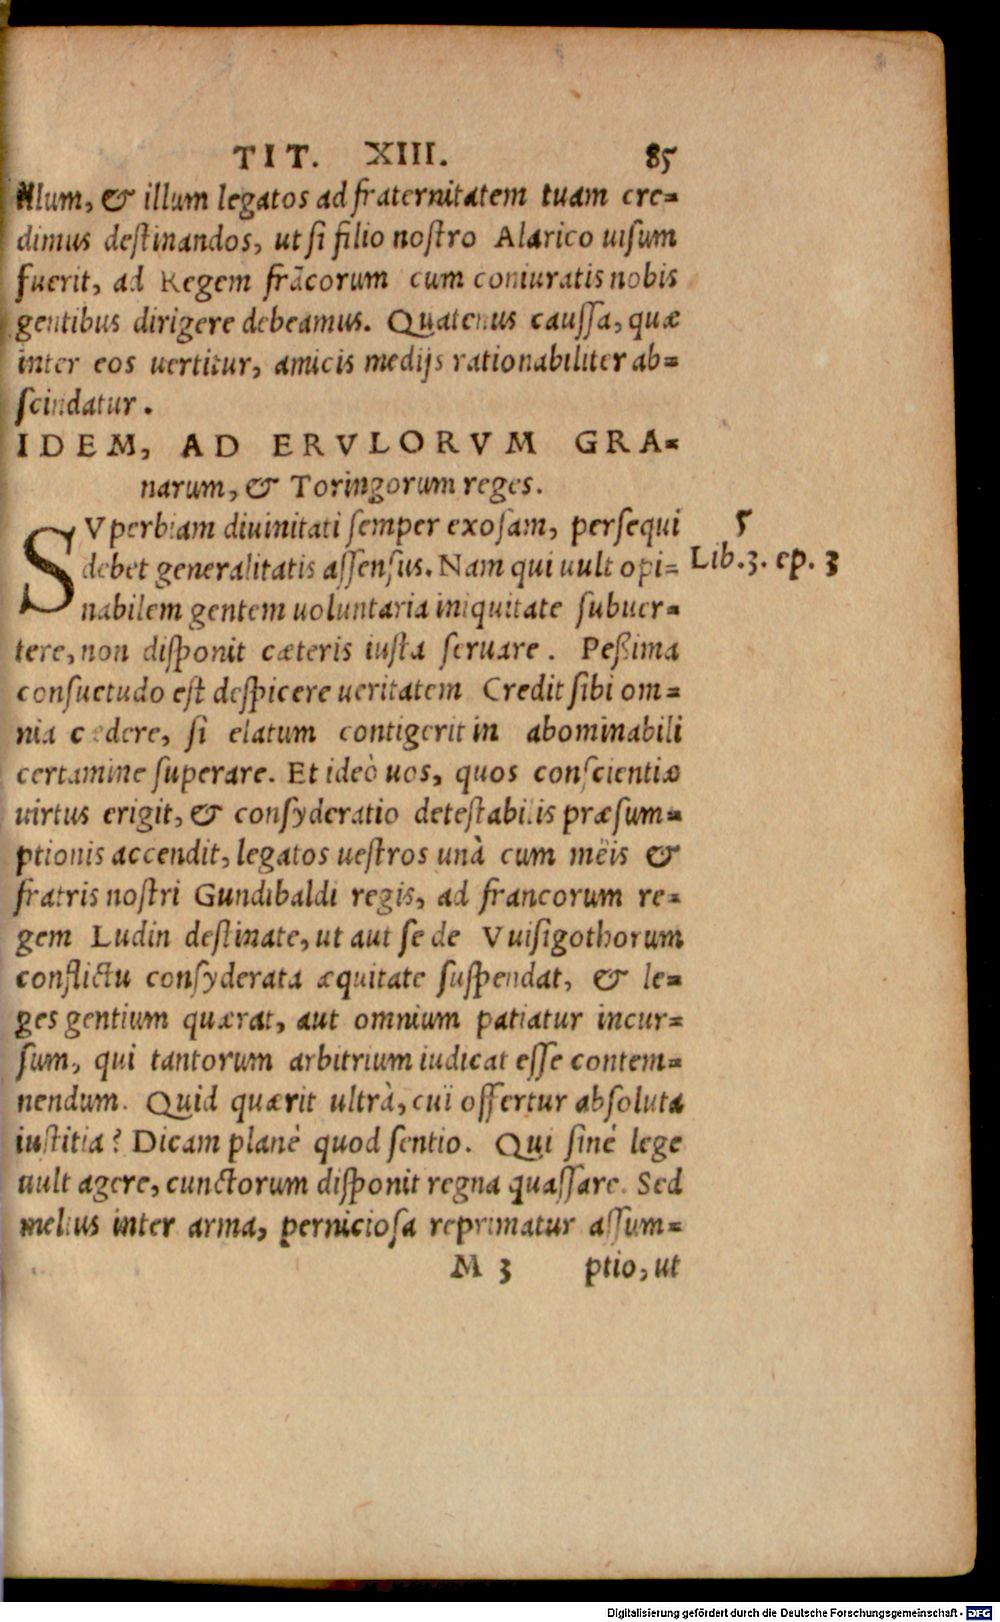 TIT. XIII. 85
illum, & illum legatos ad fraternitatem tuam cre-
dimus destinandos, ut si filio nostro Alarico uisum
fuerit, ad Regem frãcorum cum coniuratis nobis
gentibus dirigere debeamus. Quatenus caussa, quæ
inter eos uertitur, amicis medijs rationabiliter ab-
scindatur.
IDEM, AD ERVLORVM GRA-
narum, & Toringorum reges.
SVperbiam diuinitati semper exosam, persequi 5
debet generalitatis assensus. Nam qui uult opi- Lib.3. ep. 3
nabilem gentem uoluntaria iniquitate subuer-
tere, non disponit cæteris iusta seruare. Peßima
consuetudo est despicere ueritatem Credit sibi om-
nia cedere, si elatum contigerit in abominabili
certamine superare. Et ideò uos, quos conscientiæ
uirtus erigit, & consyderatio detestabilis præsum-
ptionis accendit, legatos uestros unà cum mëis &
fratris nostri Gundibaldi regis, ad francorum re-
gem Ludin destinate, ut aut se de Vuisigothorum
conflictu consyderata æquitate suspendat, & le-
ges gentium quærat, aut omnium patiatur incur-
sum, qui tantorum arbitrium iudicat esse contem-
nendum. Quid quærit ultrà, cuï offertur absoluta
iustitia? Dicam planè quod sentio. Qui siné lege
uult agere, cunctorum disponit regna quassare. Sed
melius inter arma, perniciosa reprimatur assum-
M 3 ptio, ut
Digitalisierung gefördert durch die Deutsche Forschungsgemeinschaft - DFG